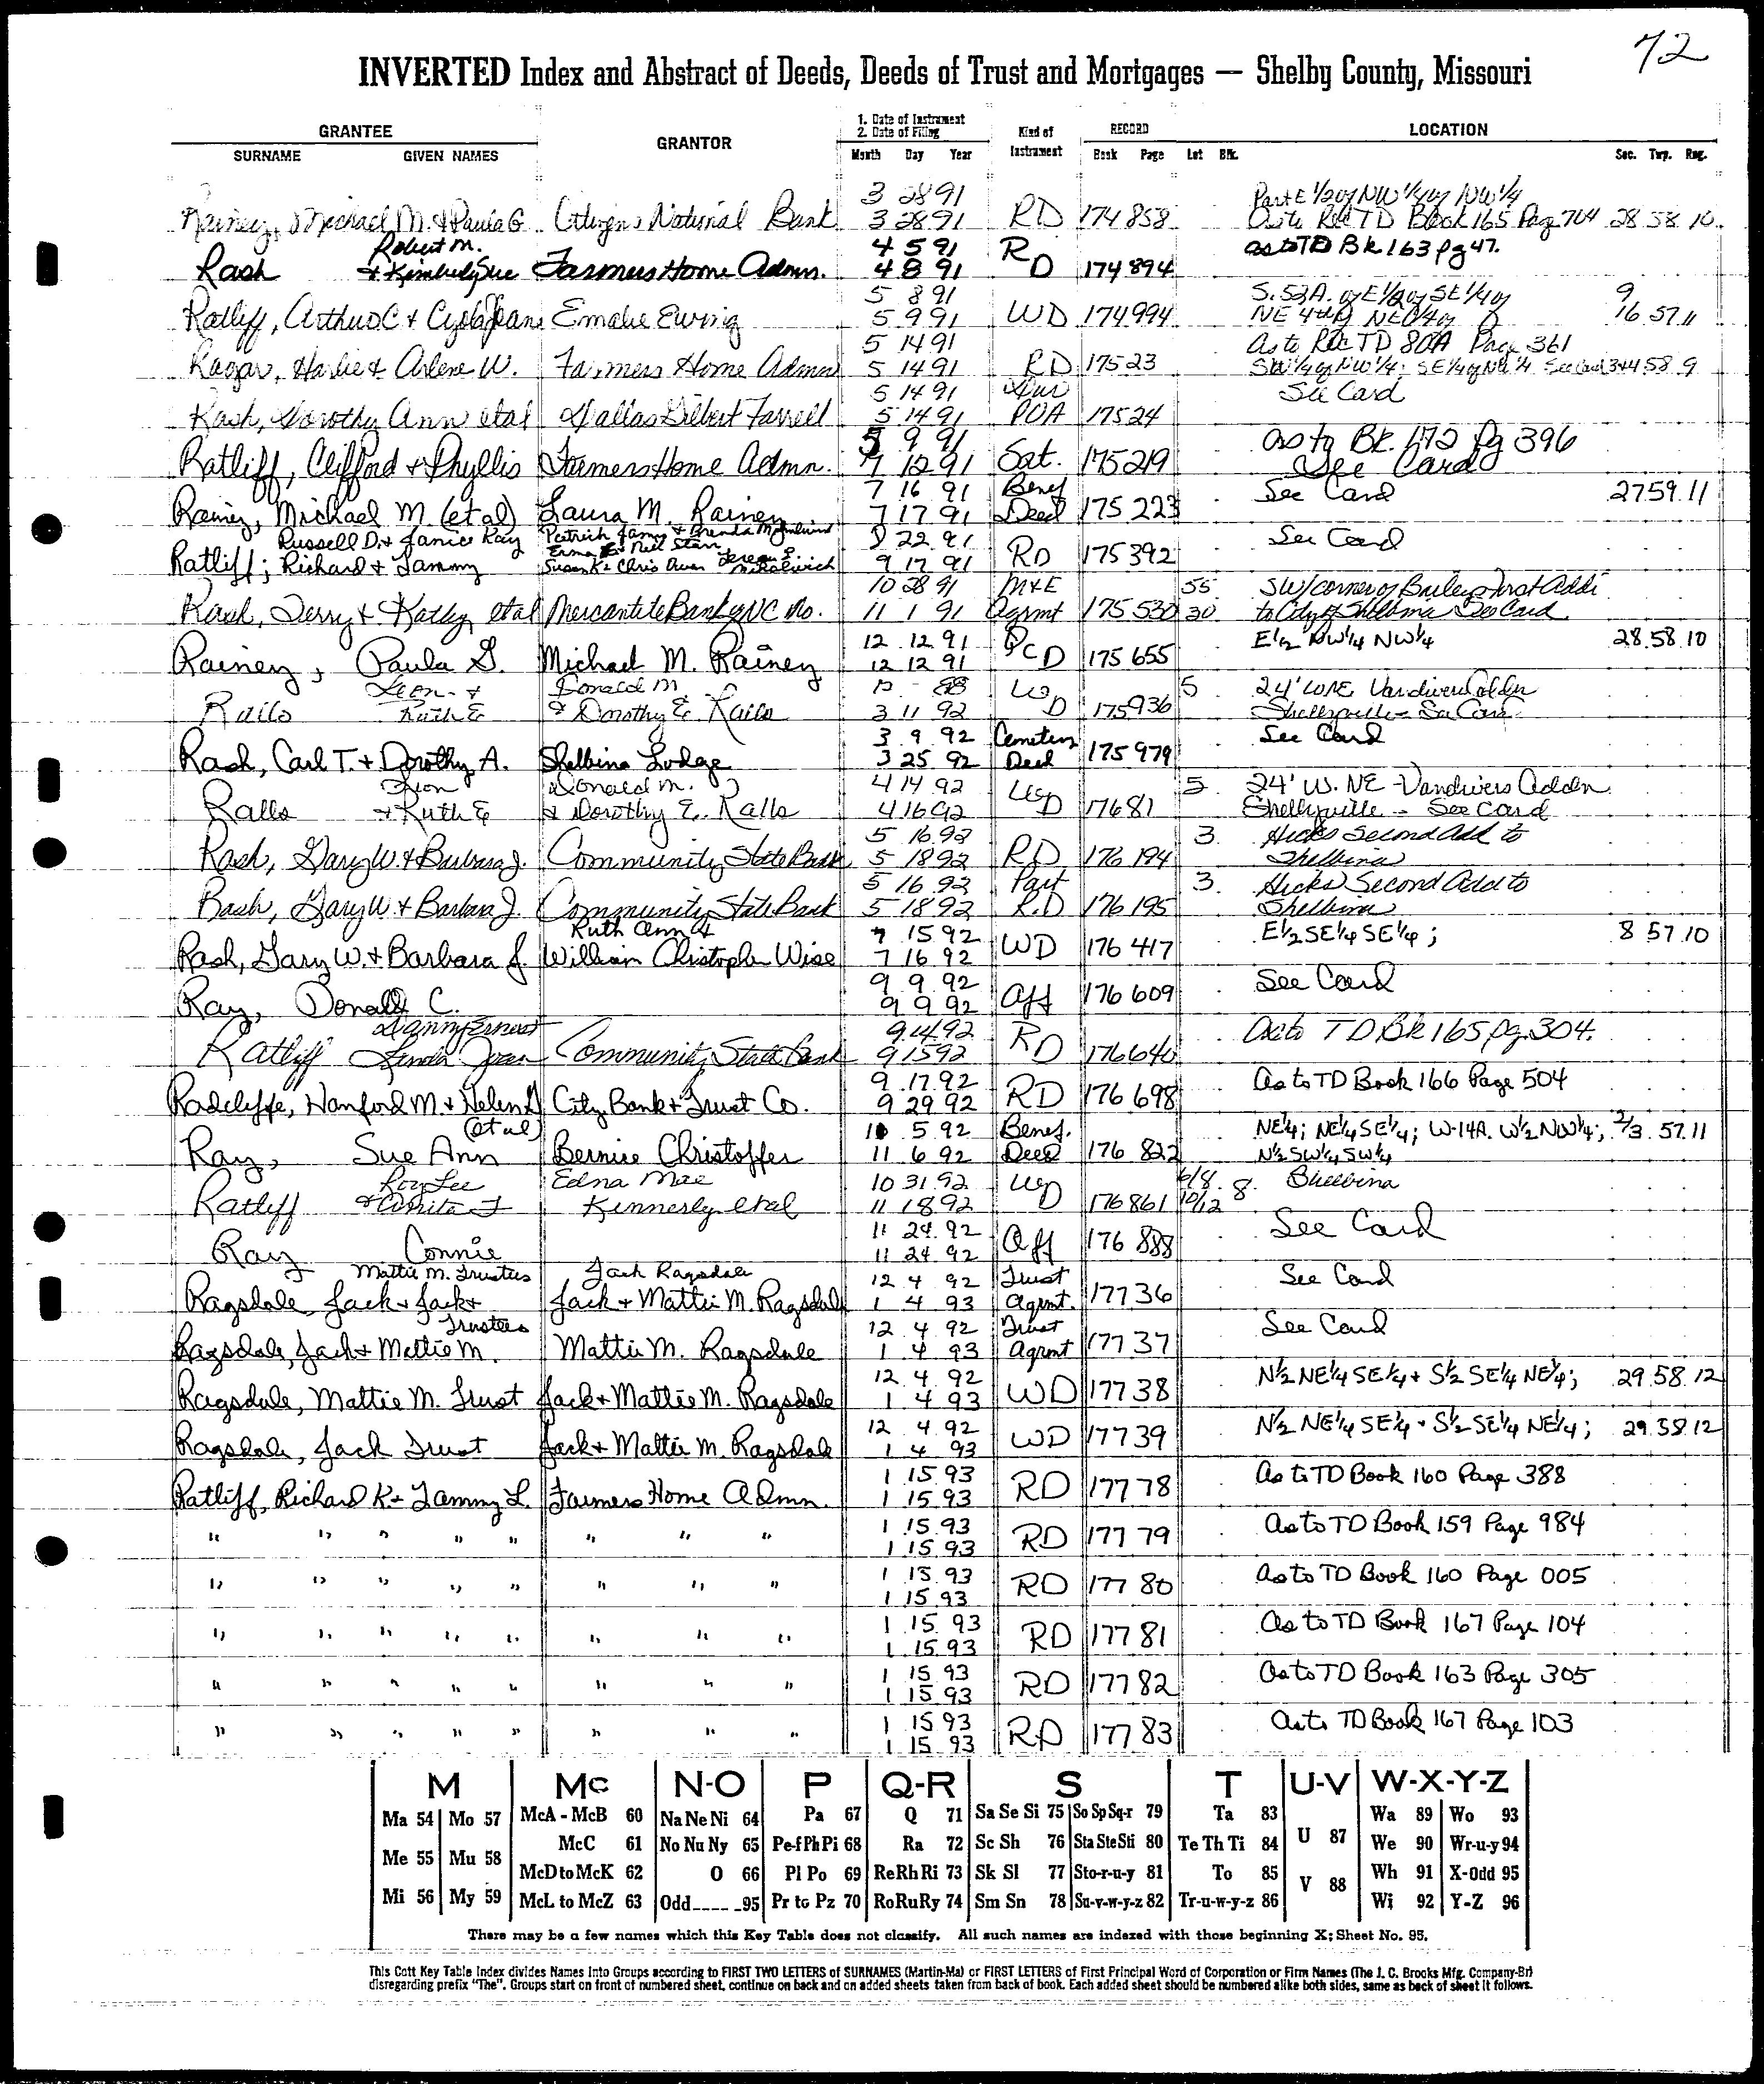 72
INVERTED Index and Abstract of Deeds, Deeds of Trust and Mortgages — Shelby County, Missouri
GRANTEE GRANTOR 1. Date of Instrument 2. Date of Filing Kind of Instrument RECORD LOCATION
SURNAME GIVEN NAMES Month Day Year Book Page Lot Blk. Sec. Twp. Rng.
3 28 91 Part E 1/2 of NW 1/4 of NW 1/4
Rainey, Michael M. & Paula G. Citizens National Bank 3 28 91 RD 174 858 As to Rec TD Book 165 Page 704 28 58 10
Robert M. 4 5 91 as to TD Bk 163 pg 47.
Rash & Kimberly Sue Farmers Home Admn. 4 8 91 RD 174 894
5 8 91 S. 53A. of E 1/2 of SE 1/4 of 9
Ratliff, Arthur C & Jean Ewing 5 9 91 WD 174 994 NE 16 57 11
5 14 91 As to Rec TD 80A Page 361
Ragar, Harlie & Arlene W. Farmers Home Admn 5 14 91 RD 175 23 SW 1/4 of NW 1/4; SE 1/4 of NE 1/4 See Card 3+4 58 9
5 14 91 Dur See Card
Rash, Dorothy Ann et al Dallas Gilbert Farrell 5 14 91 POA 175 24
5 9 91 as to Bk. 172 Pg 396
Ratliff, Clifford & Phyllis Farmers Home Admn. 7 12 91 Sat. 175 219 See Card
7 16 91 Benef See Card 27 59 11
Rainey, Michael M. (et al) Laura M. Rainey 7 17 91 Deed 175 223
Russell D. & Janice Kay Patrick & Brenda M. 22 91 See Card
Erma & Neil Starr
Ratliff; Richard & Tammy Susan K & Chris Owen 9 17 91 RD 175 392
10 28 91 M&E 55 SW/corner of Baileys First Addi
Rash, Terry & Kathy, et al Mercantile Bank of NC Mo. 11 1 91 Agrmt 175 530 30 to City of Shelbina See Card
12 12 91 E 1/2 NW 1/4 NW 1/4 28 58 10
Rainey, Paula G. Michael M. Rainey 12 12 91 QCD 175 655
Leon & Donald M. 88 WD 5 24' W NE Vandivers Addn
Ralls Ruth E & Dorothy E. Ralls 3 11 92 175 936 Shelbyville - See Card
3 9 92 Cemetery See Card
Rash, Carl T. & Dorothy A. Shelbina Lodge 3 25 92 Deed 175 979
Leon Donald M. 4 14 92 5 24' W. NE - Vandivers Addn
Ralls & Ruth E & Dorothy E. Ralls 4 16 92 WD 176 81 Shelbyville - See Card
5 16 92 3 Hicks Second Add to
Rash, Gary W & Barbara J. Community State Bank 5 18 92 RD 176 194 Shelbina
5 16 92 Part 3 Hicks Second Add to
Rash, Gary W. & Barbara J. Community State Bank 5 18 92 R.D 176 195 Shelbina
Ruth Ann & 7 15 92 E 1/2 SE 1/4 SE 1/4; 8 57 10
Rash, Gary W. & Barbara J. William Christopher Wise 7 16 92 WD 176 417
9 9 92 See Card
Ray, Donald C. 9 9 92 Aff 176 609
Danny Ernest 9 14 92 As to TD Bk 165 pg. 304.
Ratliff Linda Jean Community State Bank 9 15 92 RD 176 640
9 17 92 As to TD Book 166 Page 504
Radclyffe, Hanford M. & Helen City Bank & Trust Co. 9 29 92 RD 176 698
(et al) 10 5 92 Benef. NE 1/4; NE 1/4 SE 1/4; W-14A. W 1/2 NW 1/4; 2/3 57 11
Ray, Sue Ann Bernice Christoffer 11 6 92 Deed 176 822 N 1/2 SW 1/4 SW 1/4
Roy Lee Edna Mae 10 31 92 6/8 8 Shelbina
Ratliff & Anita F Kennerly et al 11 18 92 WD 176 861 10/12
11 24 92 See Card
Ray Connie 11 24 92 Aff 176 888
Mattie M. Trustees Jack Ragsdale 12 4 92 Trust See Card
Ragsdale Jack & Jack & Jack & Mattie M. Ragsdale 1 4 93 Agrmt. 177 36
Trustees 12 4 92 Trust See Card
Ragsdale, Jack & Mattie M. Mattie M. Ragsdale 1 4 93 Agrmt 177 37
12 4 92 N 1/2 NE 1/4 SE 1/4 + S 1/2 SE 1/4 NE 1/4; 29 58 12
Ragsdale, Mattie M. Trust Jack & Mattie M. Ragsdale 1 4 93 WD 177 38
12 4 92 N 1/2 NE 1/4 SE 1/4 + S 1/2 SE 1/4 NE 1/4; 29 58 12
Ragsdale, Jack Trust Jack & Mattie M. Ragsdale 1 4 93 WD 177 39
1 15 93 As to TD Book 160 Page 388
Ratliff, Richard K & Tammy L. Farmers Home Admn. 1 15 93 RD 177 78
1 15 93 As to TD Book 159 Page 984
" " " " " " " " 1 15 93 RD 177 79
1 15 93 As to TD Book 160 Page 005
" " " " " " " " 1 15 93 RD 177 80
1 15 93 As to TD Book 167 Page 104
" " " " " " " " 1 15 93 RD 177 81
1 15 93 As to TD Book 163 Page 305
" " " " " " " " 1 15 93 RD 177 82
1 15 93 As to TD Book 167 Page 103
" " " " " " " " 1 15 93 RD 177 83
M Mc N-O P Q-R S T U-V W-X-Y-Z
Ma 54 Mo 57 McA - McB 60 Na Ne Ni 64 Pa 67 Q 71 Sa Se Si 75 So Sp Sq-r 79 Ta 83 U 87 Wa 89 Wo 93
McC 61 No Nu Ny 65 Pe-f Ph Pi 68 Ra 72 Sc Sh 76 Sta Ste Sti 80 Te Th Ti 84 We 90 Wr-u-y 94
Me 55 Mu 58 McD to McK 62 O 66 Pl Po 69 Re Rh Ri 73 Sk Sl 77 Sto-r-u-y 81 To 85 V 88 Wh 91 X-Odd 95
Mi 56 My 59 McL to McZ 63 Odd 95 Pr to Pz 70 Ro Ru Ry 74 Sm Sn 78 Su-v-w-y-z 82 Tr-u-w-y-z 86 Wi 92 Y-Z 96
There may be a few names which this Key Table does not classify. All such names are indexed with those beginning X; Sheet No. 95.
This Cott Key Table Index divides Names Into Groups according to FIRST TWO LETTERS of SURNAMES (Martin-Ma) or FIRST LETTERS of First Principal Word of Corporation or Firm Names (The J. C. Brooks Mfg. Company-Br)
disregarding prefix "The". Groups start on front of numbered sheet, continue on back and on added sheets taken from back of book. Each added sheet should be numbered alike both sides, same as back of sheet it follows.